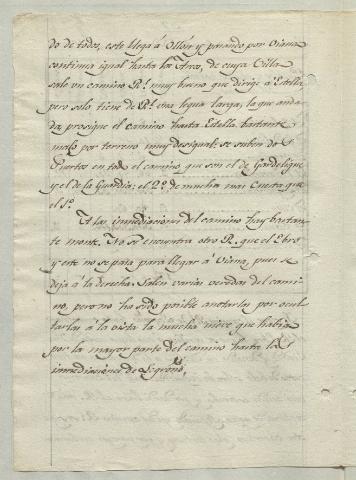 do de todos, este llega á Ollon y pasando por Viana
continua igual hasta los Arcos, de cuya Villa
sale un camino Rl. muy bueno que dirige á Estella
pero solo tiene de Rl. una legua larga, la que anda
da, prosigue el camino hasta Estella bastante
malo por terreno muy desigual: se suben dos
Puertos en todo el camino que son el de Gardelegui
y el de la Guardia; el 2º. de mucha mas Cuesta que
el 1º.
A las inmediaciones del camino hay bastan-
te monte. No se encuentra otro R. que el Ebro
y este no se pasa para llegar á Viana, pues se
deja á la derecha. Salen varias veredas del cami-
no, pero no ha sido posible anotarlas por ocul-
tarlas á la vista la mucha nieve que habia
por la mayor parte del camino hasta las
inmediaciones de Logroño